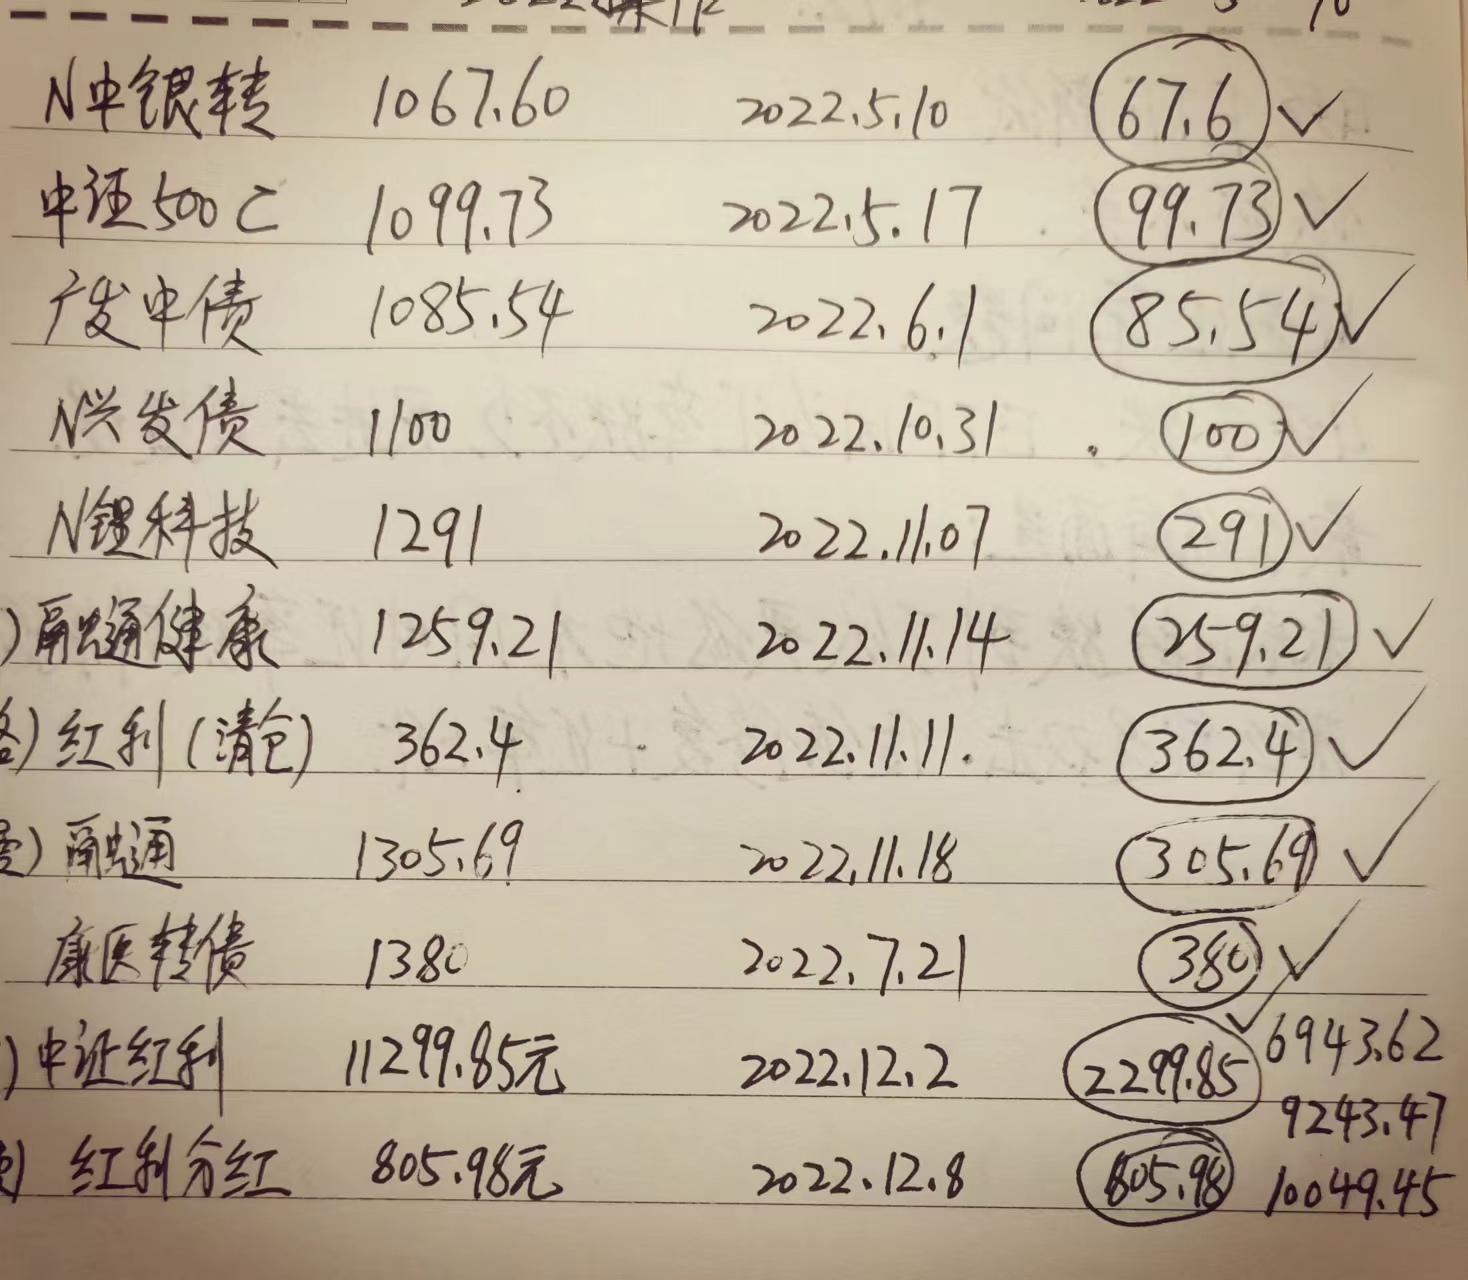 N中银转 1067.60 2022.5.10 67.6 ✓
中证500C 1099.73 2022.5.17 99.73 ✓
广发中债 1085.54 2022.6.1 85.54 ✓
N兴发债 1100 2022.10.31 100 ✓
N锂科技 1291 2022.11.07 291 ✓
)融通健康 1259.21 2022.11.14 259.21 ✓
)红利(清仓) 362.4 2022.11.11. 362.4 ✓
)融通 1305.69 2022.11.18 305.69 ✓
康医转债 1380 2022.7.21 380 ✓
)中证红利 11299.85元 2022.12.2 2299.85 ✓ 6943.62
9243.47
)红利分红 805.98元 2022.12.8 805.98 10049.45